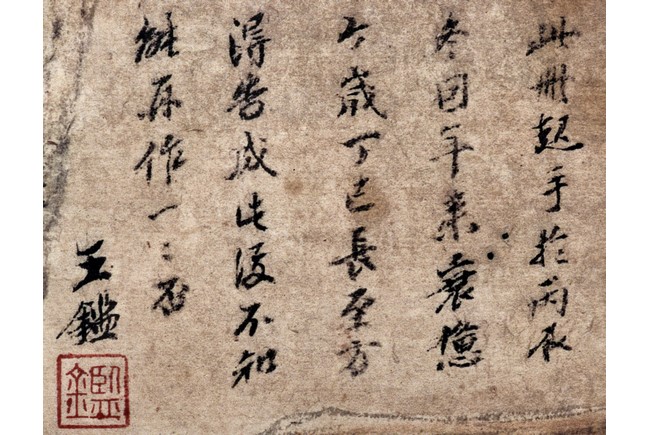 此冊起手於丙辰
冬因年來衰憊
今歲丁巳長至方
得告成此後不知
能再作一二否
王鑑
鑑